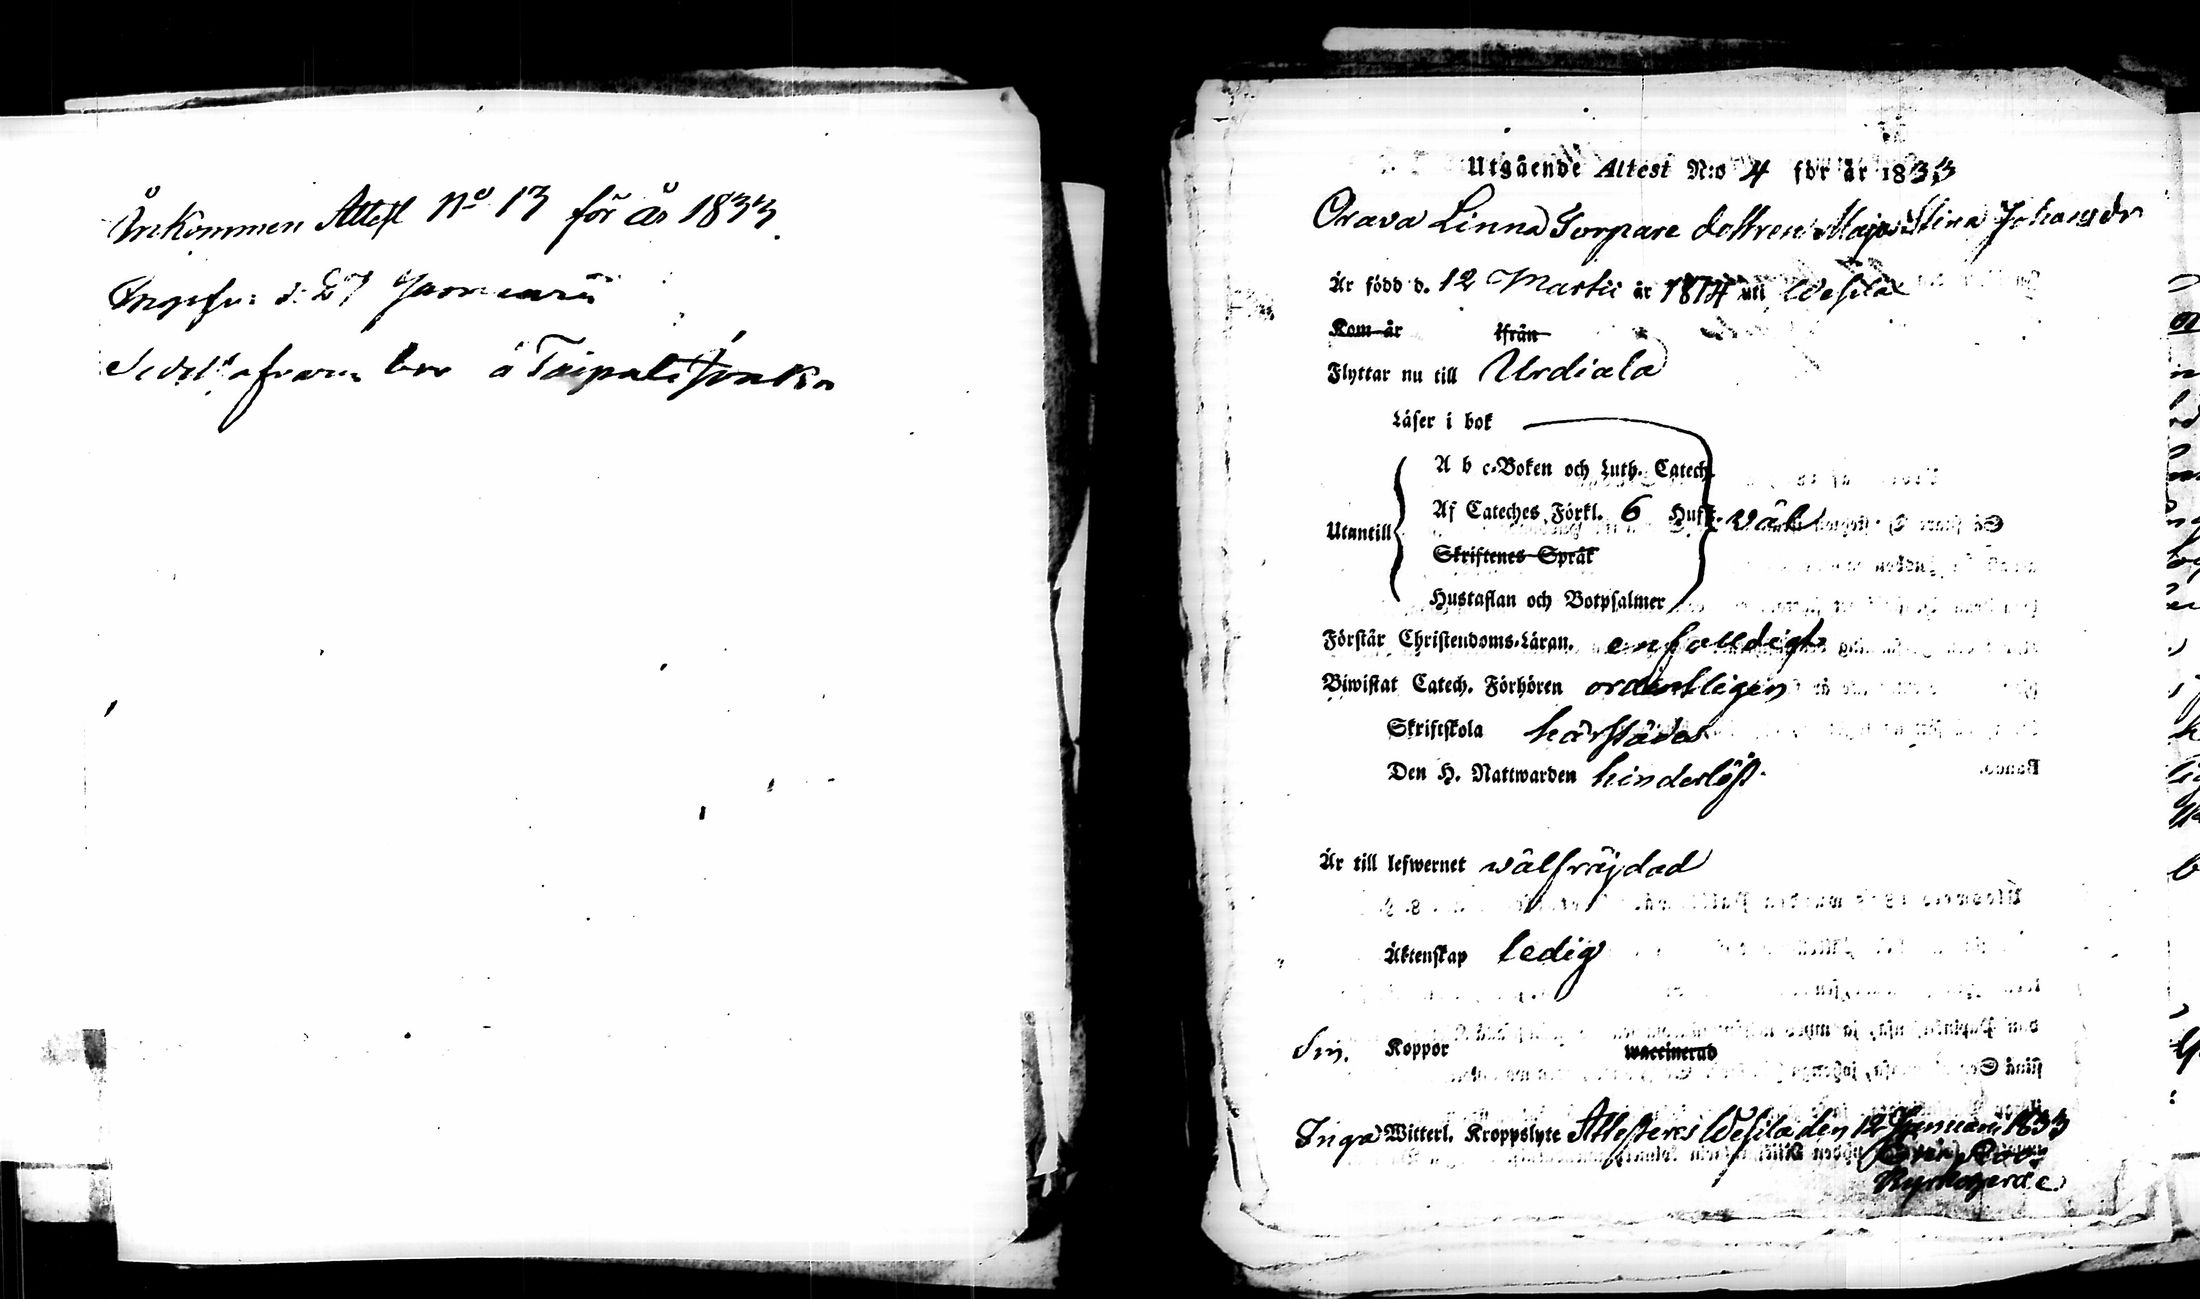 Inkommen Attest No 13 för år 1833.
d. 27 Januarii
bor å Taipale
Utgående Attest N:o 4 för år 1833
Orava Linna Torpare dottren Maja Stina Johansdr
Är född d. 12 Martii år 1814 uti Wesila
Kom år ifrån
Flyttar nu till Urdiala
Läser i bok
A b c-Boken och Luth. Catech.
Utantill Af Cateches Förkl. 6 Hufst. väl
Skriftenes Språk
Hustaflan och Botpsalmer
Förstår Christendoms-Läran. enfalldigt
Biwistat Catech. Förhören ordentligen
Skriftskola härstädes
Den H. Nattwarden hinderlöst.
Är till lefwernet välfräjdad
Äktenskap ledig
Koppor waccinerad
Inga Witterl. Kroppslyte Attesteras Wesila den 12 Januarii 1833